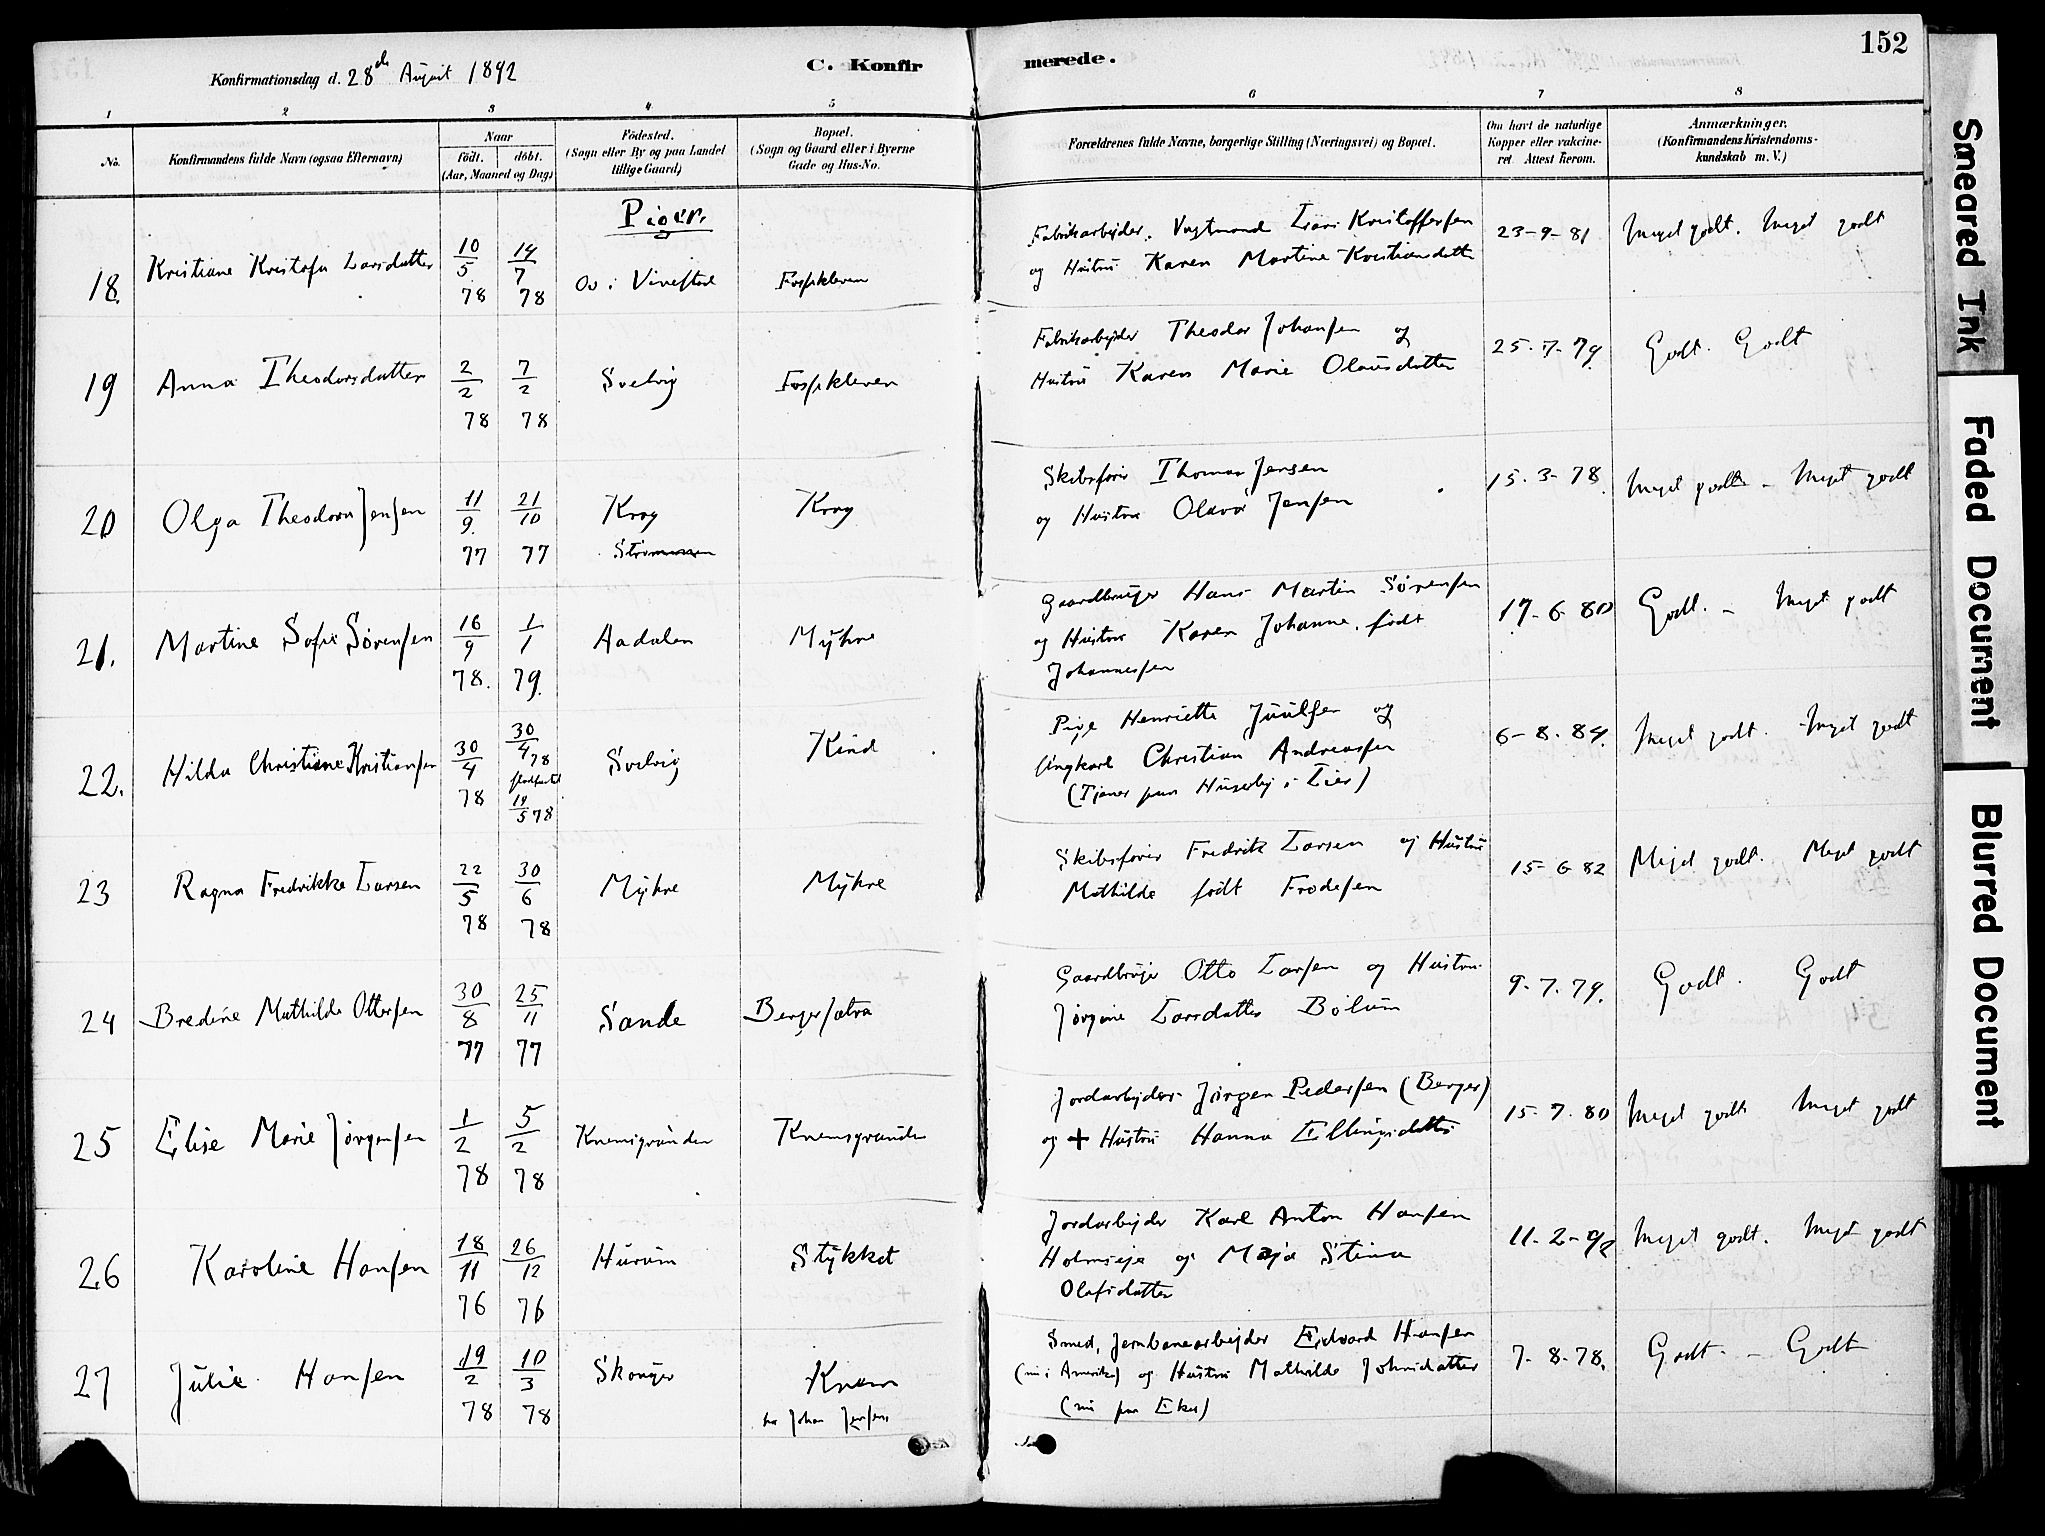 152
Konfirmationsdag d. 28de August 1892
C. Konfirmerede.
1 2 3 4 5 6 7 8
No.
Konfirmandens fulde Navn (ogsaa Efternavn)
Naar
født. døbt.
(Aar, Maaned og Dag)
Fødested.
(Sogn eller By og paa Landet
tillige Gaard)
Bopæl.
(Sogn og Gaard eller i Byerne
Gade og Hus-No.
Forældrenes fulde Navne, borgerlige Stilling (Næringsvei) og Bopæl.
Om havt de naturlige
Kopper eller vakcine-
ret. Attest herom.
Anmærkninger.
(Konfirmandens Kristendoms-
kundskab m. V.)
Piger.
18. Kristiane Kristofa Larsdatter 10/5 78 14/7 78 Fossekleven
Fabrikarbeider, Lars Kristoffersen
og Hustru Karen Martine Kristiansdatter
23-9-81 Meget godt. Meget godt
19 Anna Theodorsdatter 2/2 78 7/2 78 Svelvig Fossekleven
Fabrikarbeider Theodor Johansen og
Hustru Karen Marie Olausdatter
25-7-79. Godt. Godt
20 Olga Theodora Jensen 11/9 77 21/10 77 Krog
Strømmen
Krog
Skibsfører Thomas Jensen
og Hustru Olava Jensen
15-3-78. Meget godt - Meget godt
21. Martine Sofie Sørensen 16/9 78. 1/1 79. Aadalen Myhre
Gaardbruger Hans Martin Sørensen
og Hustru Karen Johanne, født
Johannessen
17-6-80 Godt. - Meget godt
22. Hilda Christiane Kristiansen 30/4 78 30/4 78 19/5 78 Svelvig Kind
Pige Henriette Juulsen og
Ungkarl Christian Andreassen
(Tjener paa Huseby i Lier)
6-8-84. Meget godt. Meget godt
23 Ragna Fredrikke Larsen 22/5 78 30/6 78 Myhre Myhre
Skibsfører Fredrik Larsen og Hustru
Mathilde født Frodesen
15-6 82 Meget godt. Meget godt
24 Bredine Mathilde Ottersen 30/8 77 25/11 77 Sande Bergersætra
Gaardbruger Otto Larsen og Hustru
Jørgine Larsdatter Bolum
9-7-79. Godt. Godt
25 Elise Marie Jørgensen 1/2 78 5/2 78 Knemsgrunden Knemsgrunden
Jordarbeider Jørgen Pedersen (Berger)
og + Hustru Hanna Ellingsdatter
15-7-80 Meget godt Meget godt
26 Karoline Hansen 18/11 76 26/12 76 Hurum Stykket
Jordarbeider Karl Anton Hansen
Holmseje og Maja Stina
Olafsdatter
11-2-92 Meget godt. Meget godt
27 Julie Hansen 19/2 78 10/3 78 Skouger Knem
hos Johan Jensen
Smed, Jernbanearbeider Edvard Hansen
(nu i Amerika) og Hustru Mathilde Johnsdatter
(nu paa Eker)
7-8-78. Godt - Godt
Smeared Ink
Faded Document
Blurred Document